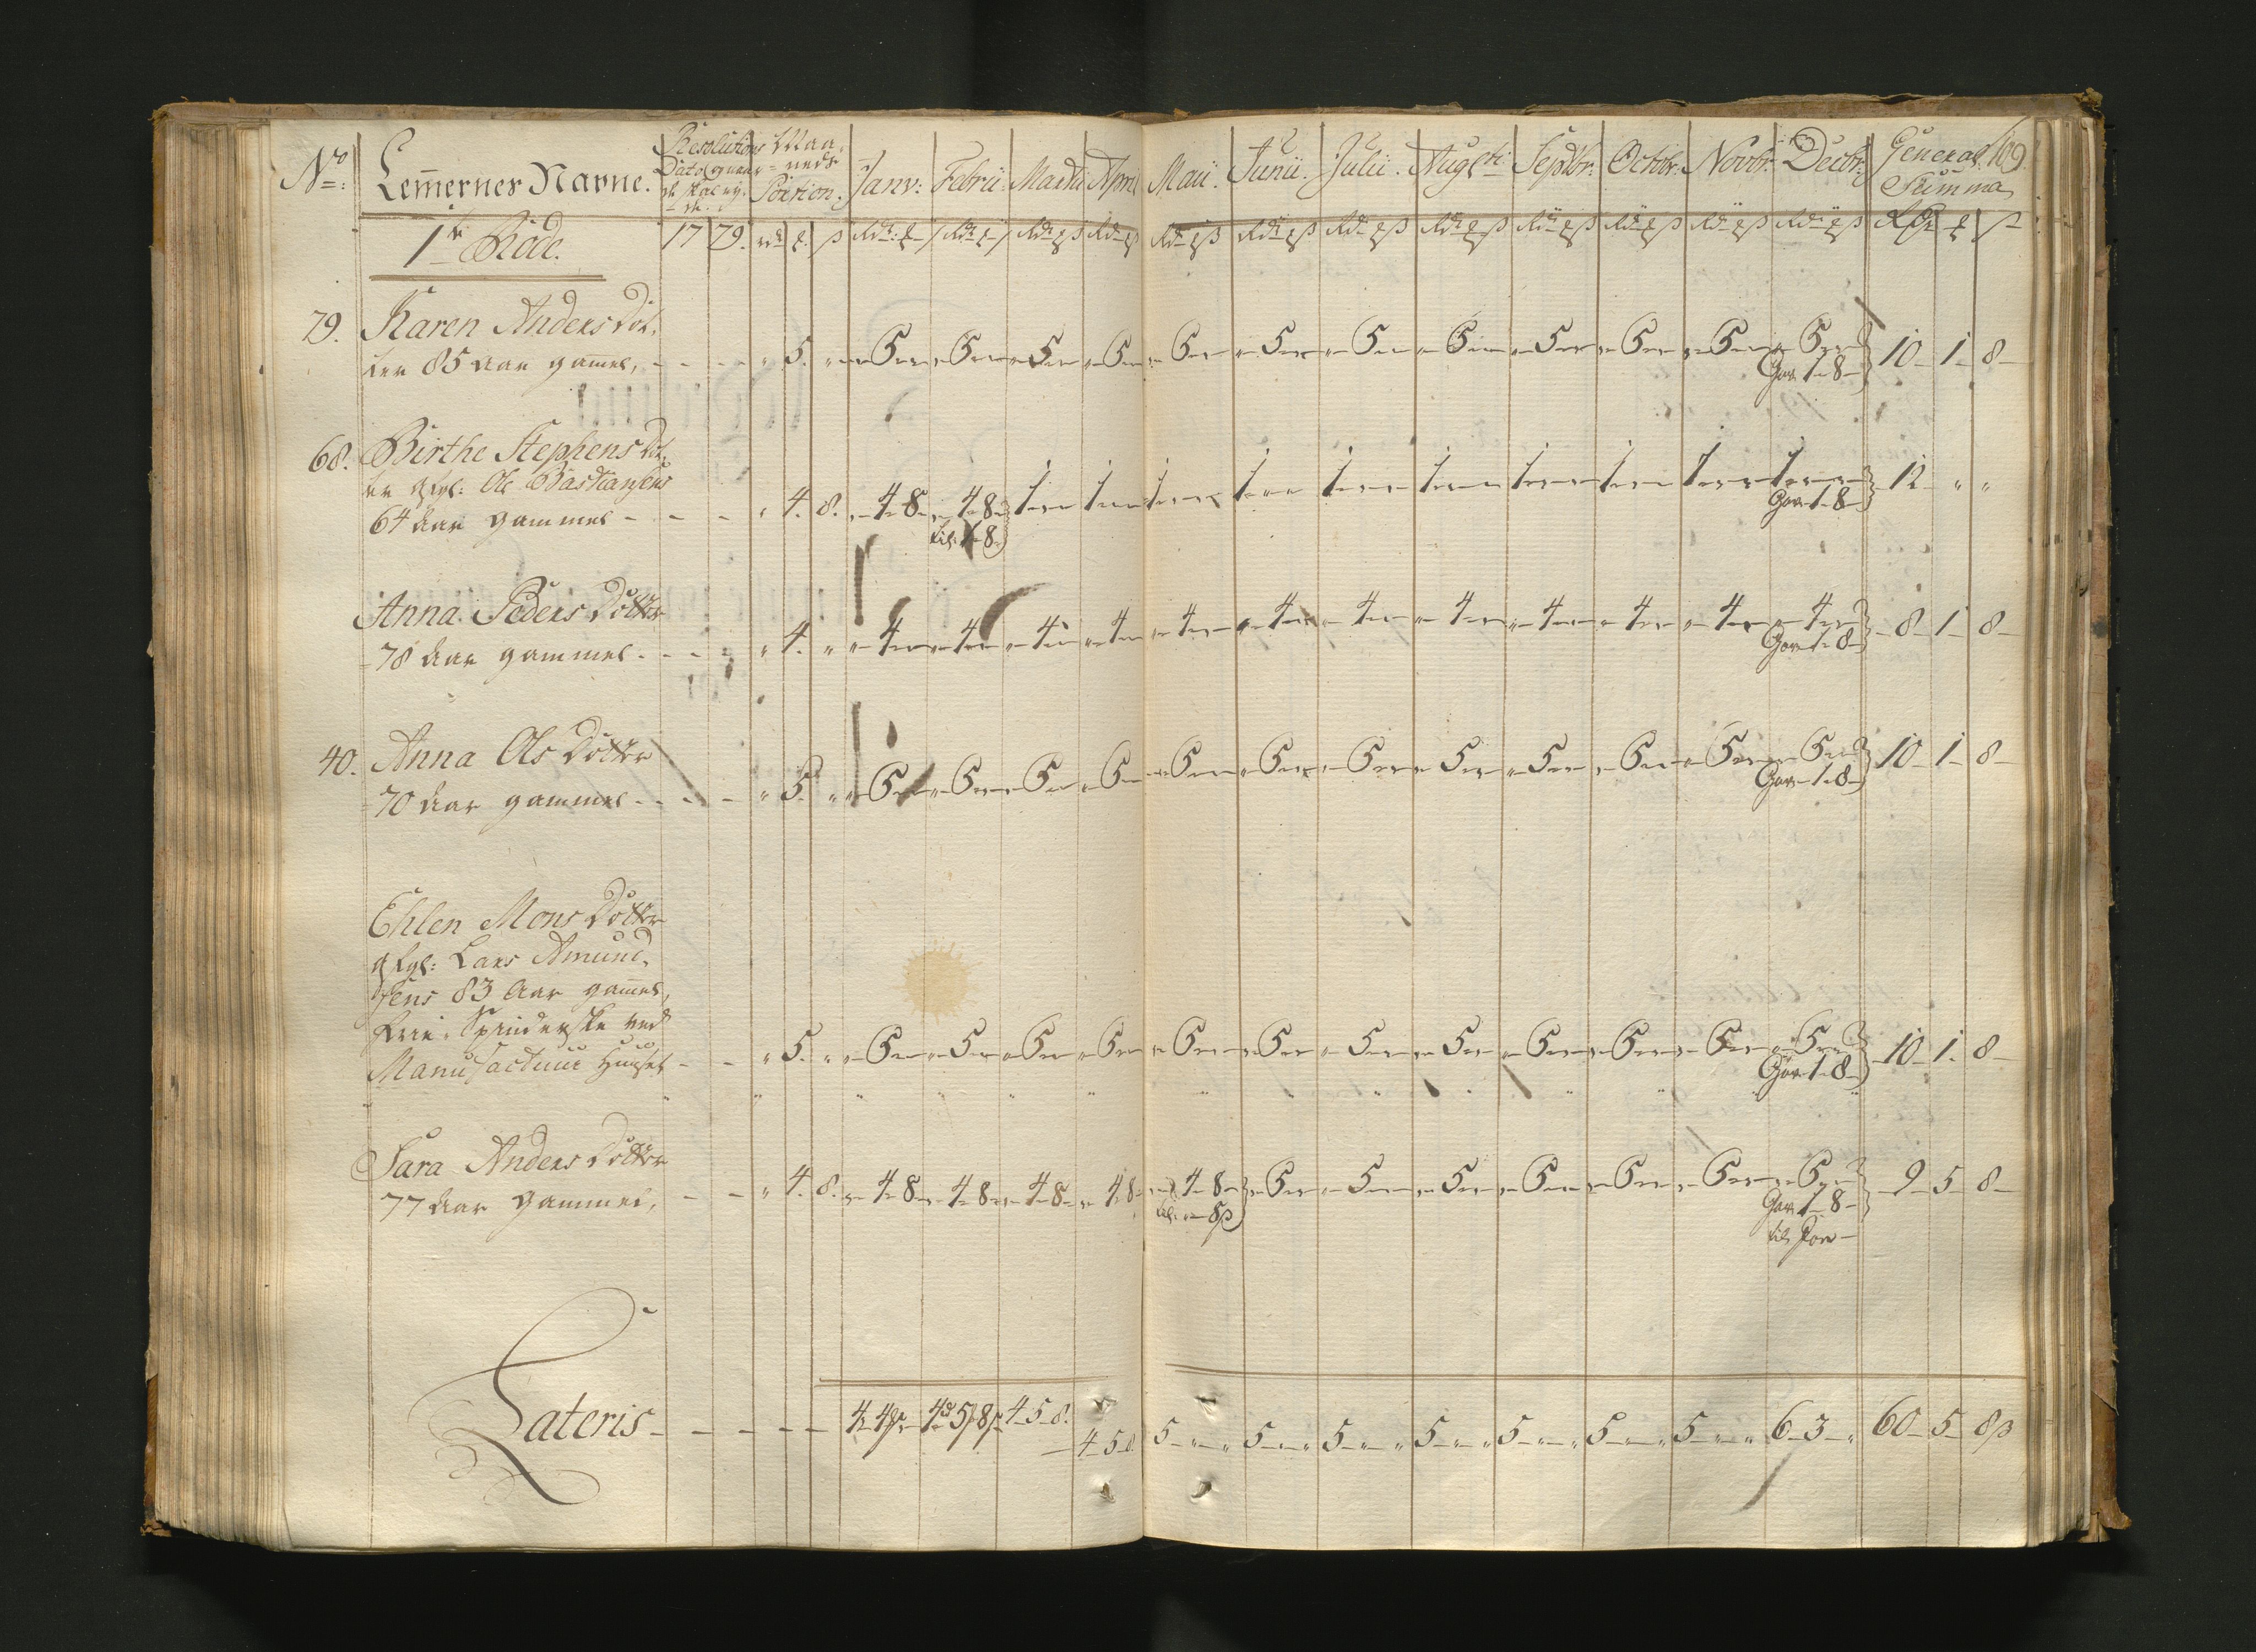 No: Lem̅ernes Navne. Resolutions Maa- Janv: Februi: Martii April Maii. Junii. Julii. Augsti Septbr: Octobr: Novbr: Decbr: General 109.
neds
Portion. Summa
1te Rode. 17 79.
79. Karen Anders Dot-
ter 85 aar gam̅el, - - - " 5. " 5 5 5 5 5 5 5 5 5 5 5 5 10 - 1 - 8 -
Gav 1-8-
68. Birthe Stephens Dot-
ter Ole Bastiansens
64 aar gammel - - - " 4. 8. 4-8- 4-8- 1 1 1 1 1 1 1 1 1 1 12 " "
til 1-8 Gav 1-8-
Anna Peders Dotter
78 aar gammel - - - " 4. " 4 4 4 4 4 4 4 4 4 4 4 4 8 - 1 - 8 -
Gav 1-8-
40. Anna Ols Dotter
70 aar gammel - - - " 5. " 5 5 5 5 5 5 5 5 5 5 5 5 10 - 1 - 8 -
Gav 1-8-
Ehlen Mons Dotter
Lars Amund-
sens 83 Aar gam̅el,
Spinderske ved
Manufactuur Huuset - - " 5. " 5 5 5 5 5 5 5 5 5 5 5 5 10 - 1 - 8 -
Gav 1-8-
Sara Anders Dotter
77 aar gammel, - - " 4. 8. 4-8- 4-8- 4-8- 4-8- 4-8- 5 5 5 5 5 5 5 9 - 5 - 8 -
til 8ß Gav 1-8-
Lateris - - - - - 4 5 8. 4 5 8 5 - " - " 5 - " - " 5 - " - " 5 - " - " 5 - " - " 5 - " - " 5 - " - " 6 - 3 - " 60 - 5 - 8ß